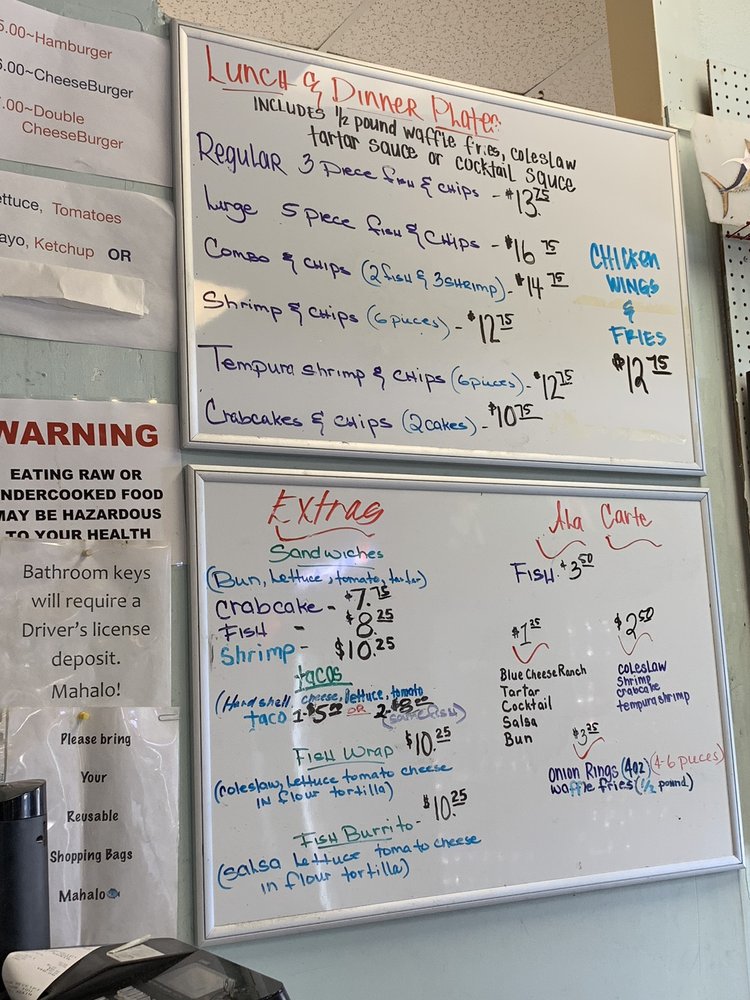 5.00~Hamburger
6.00~CheeseBurger
7.00~Double
CheeseBurger
ettuce, Tomatoes
ayo, Ketchup OR
WARNING
EATING RAW OR
UNDERCOOKED FOOD
MAY BE HAZARDOUS
TO YOUR HEALTH
Bathroom keys
will require a
Driver's license
deposit.
Mahalo!
Please bring
Your
Reusable
Shopping Bags
Mahalo
Lunch & Dinner Plates
INCLUDES 1/2 pound waffle fries, coleslaw
tartar sauce or cocktail sauce
Regular 3 Piece fish & chips - $13.75
Large 5 piece fish & chips - $16 75
Combo & chips (2 fish & 3 shrimp) - $14 75
Shrimp & chips (6 pieces) - $12 75
Tempura shrimp & chips (6 pieces) - $12 75
Crabcakes & chips (2 cakes) - $10 75
CHICKEN
WINGS
&
FRIES
$12 75
Extras
Sandwiches
(Bun, Lettuce, tomato, tartar)
Crabcake - $7.75
FISH - $8.25
Shrimp - $10.25
tacos
(Hard shell, cheese, lettuce, tomato
taco 1-$5 OR 2-$8
Fish Wrap $10.25
(coleslaw, Lettuce tomato cheese
in flour tortilla)
Fish Burrito - $10.25
(salsa Lettuce tomato cheese
in flour tortilla)
Ala Carte
FISH $3 50
$1 25
Blue Cheese Ranch
Tartar
Cocktail
Salsa
Bun
$2 50
coleslaw
shrimp
crabcake
tempura shrimp
$3 25
onion Rings (4oz) (4-6 pieces)
waffle fries (1/2 pound)